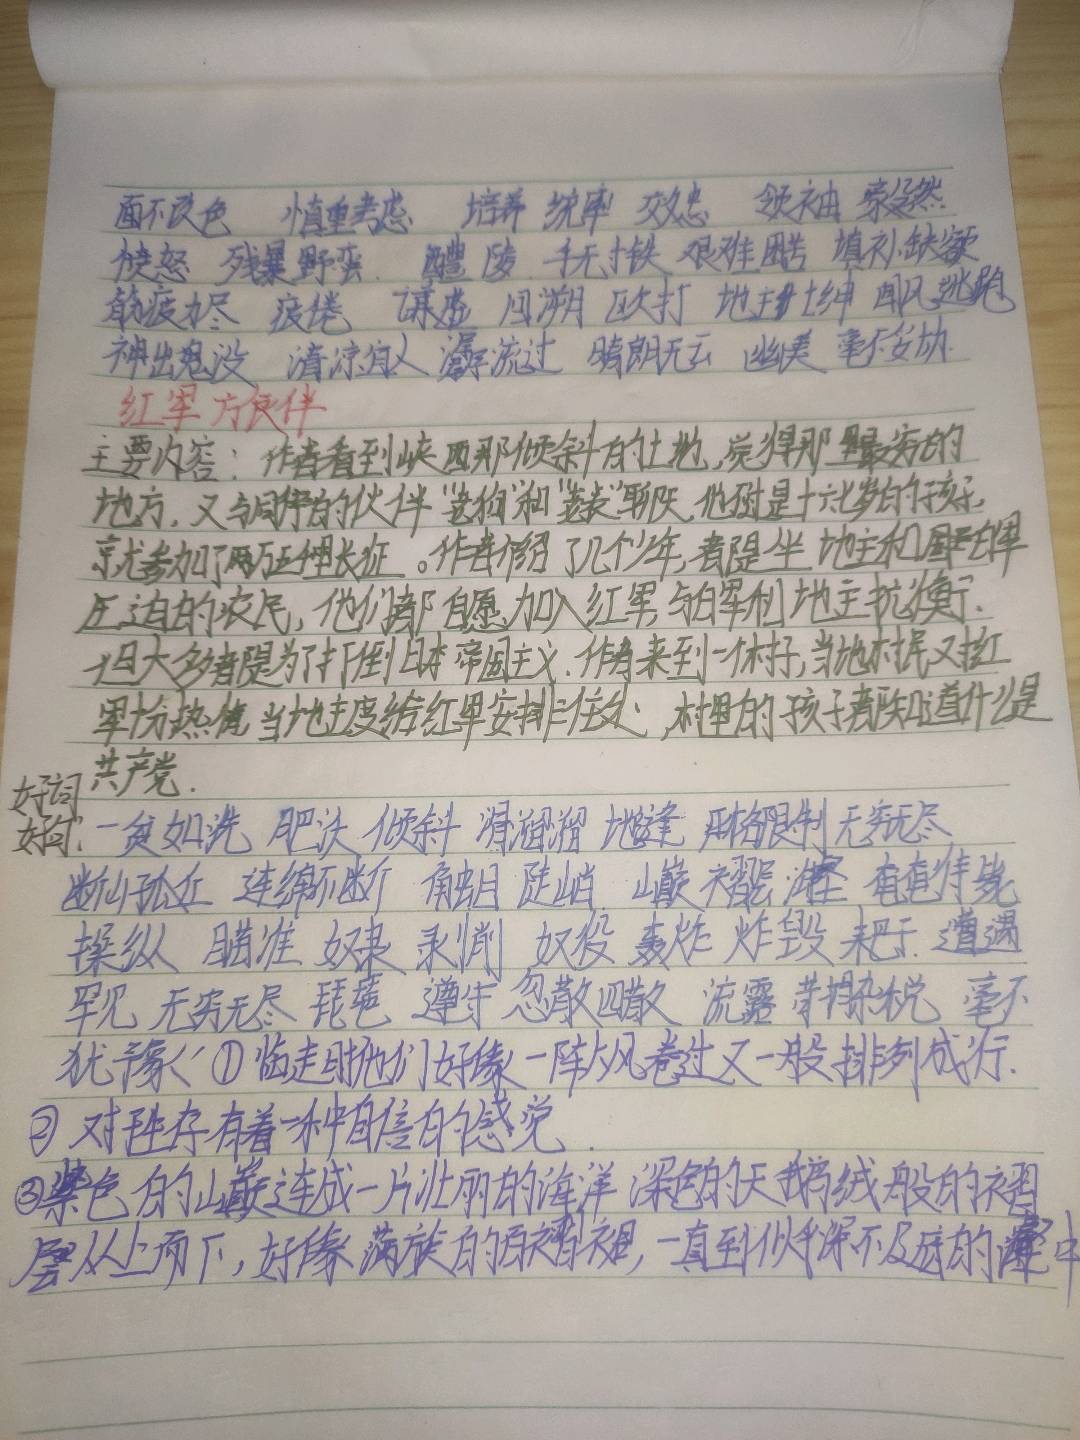 面不改色 慎重考虑 培养 统率 效忠 领袖 索然
愤怒 残暴野蛮 醴陵 手无寸铁 艰难困苦 填补缺额
筋疲力尽 疲倦 谋虑 殴打 地主士绅 闻风逃跑
神出鬼没 清凉宜人 潺潺流过 晴朗无云 幽美 毫不妥协
红军 方 伴
主要内容：作者看到陕西那倾斜的土地，觉得那里最穷的
地方，又与同伴的伙伴“老狗”和“老表”聊天，他们是十六七岁的孩子，
就参加了两万五千里长征。作者介绍了几个少年，都是坐 地主和国民白军
压迫的农民，他们都自愿加入红军，与白军和地主抗衡.
但大多都是为了打倒日本帝国主义.作者来到一个村子，当地村民又对红
军十分热情 当地主席给红军安排住处，村里的孩子都知道什么是
共产党.
好词
好句: 一贫如洗 肥沃 倾斜 滑溜溜 地缝 严格限制 无穷无尽
断山孤丘 连绵不断 触目 陡峭 山巅 褶层 有色待毙
操纵 瞄准 奴隶 剥削 奴役 轰炸 炸毁 耙子 遭遇
罕见 无穷无尽 琵琶 遵守 忽散四散 流露 苛捐杂税 毫不
犹豫 ①临走时他们好像一阵大风卷过又一般排列成行.
②对生存有着一种自信的感觉.
③紫色的山巅连成一片壮丽的海洋 深色的天鹅绒般的褶
层从上而下，好像满族的百褶裙，一直到似乎深不及底的 中